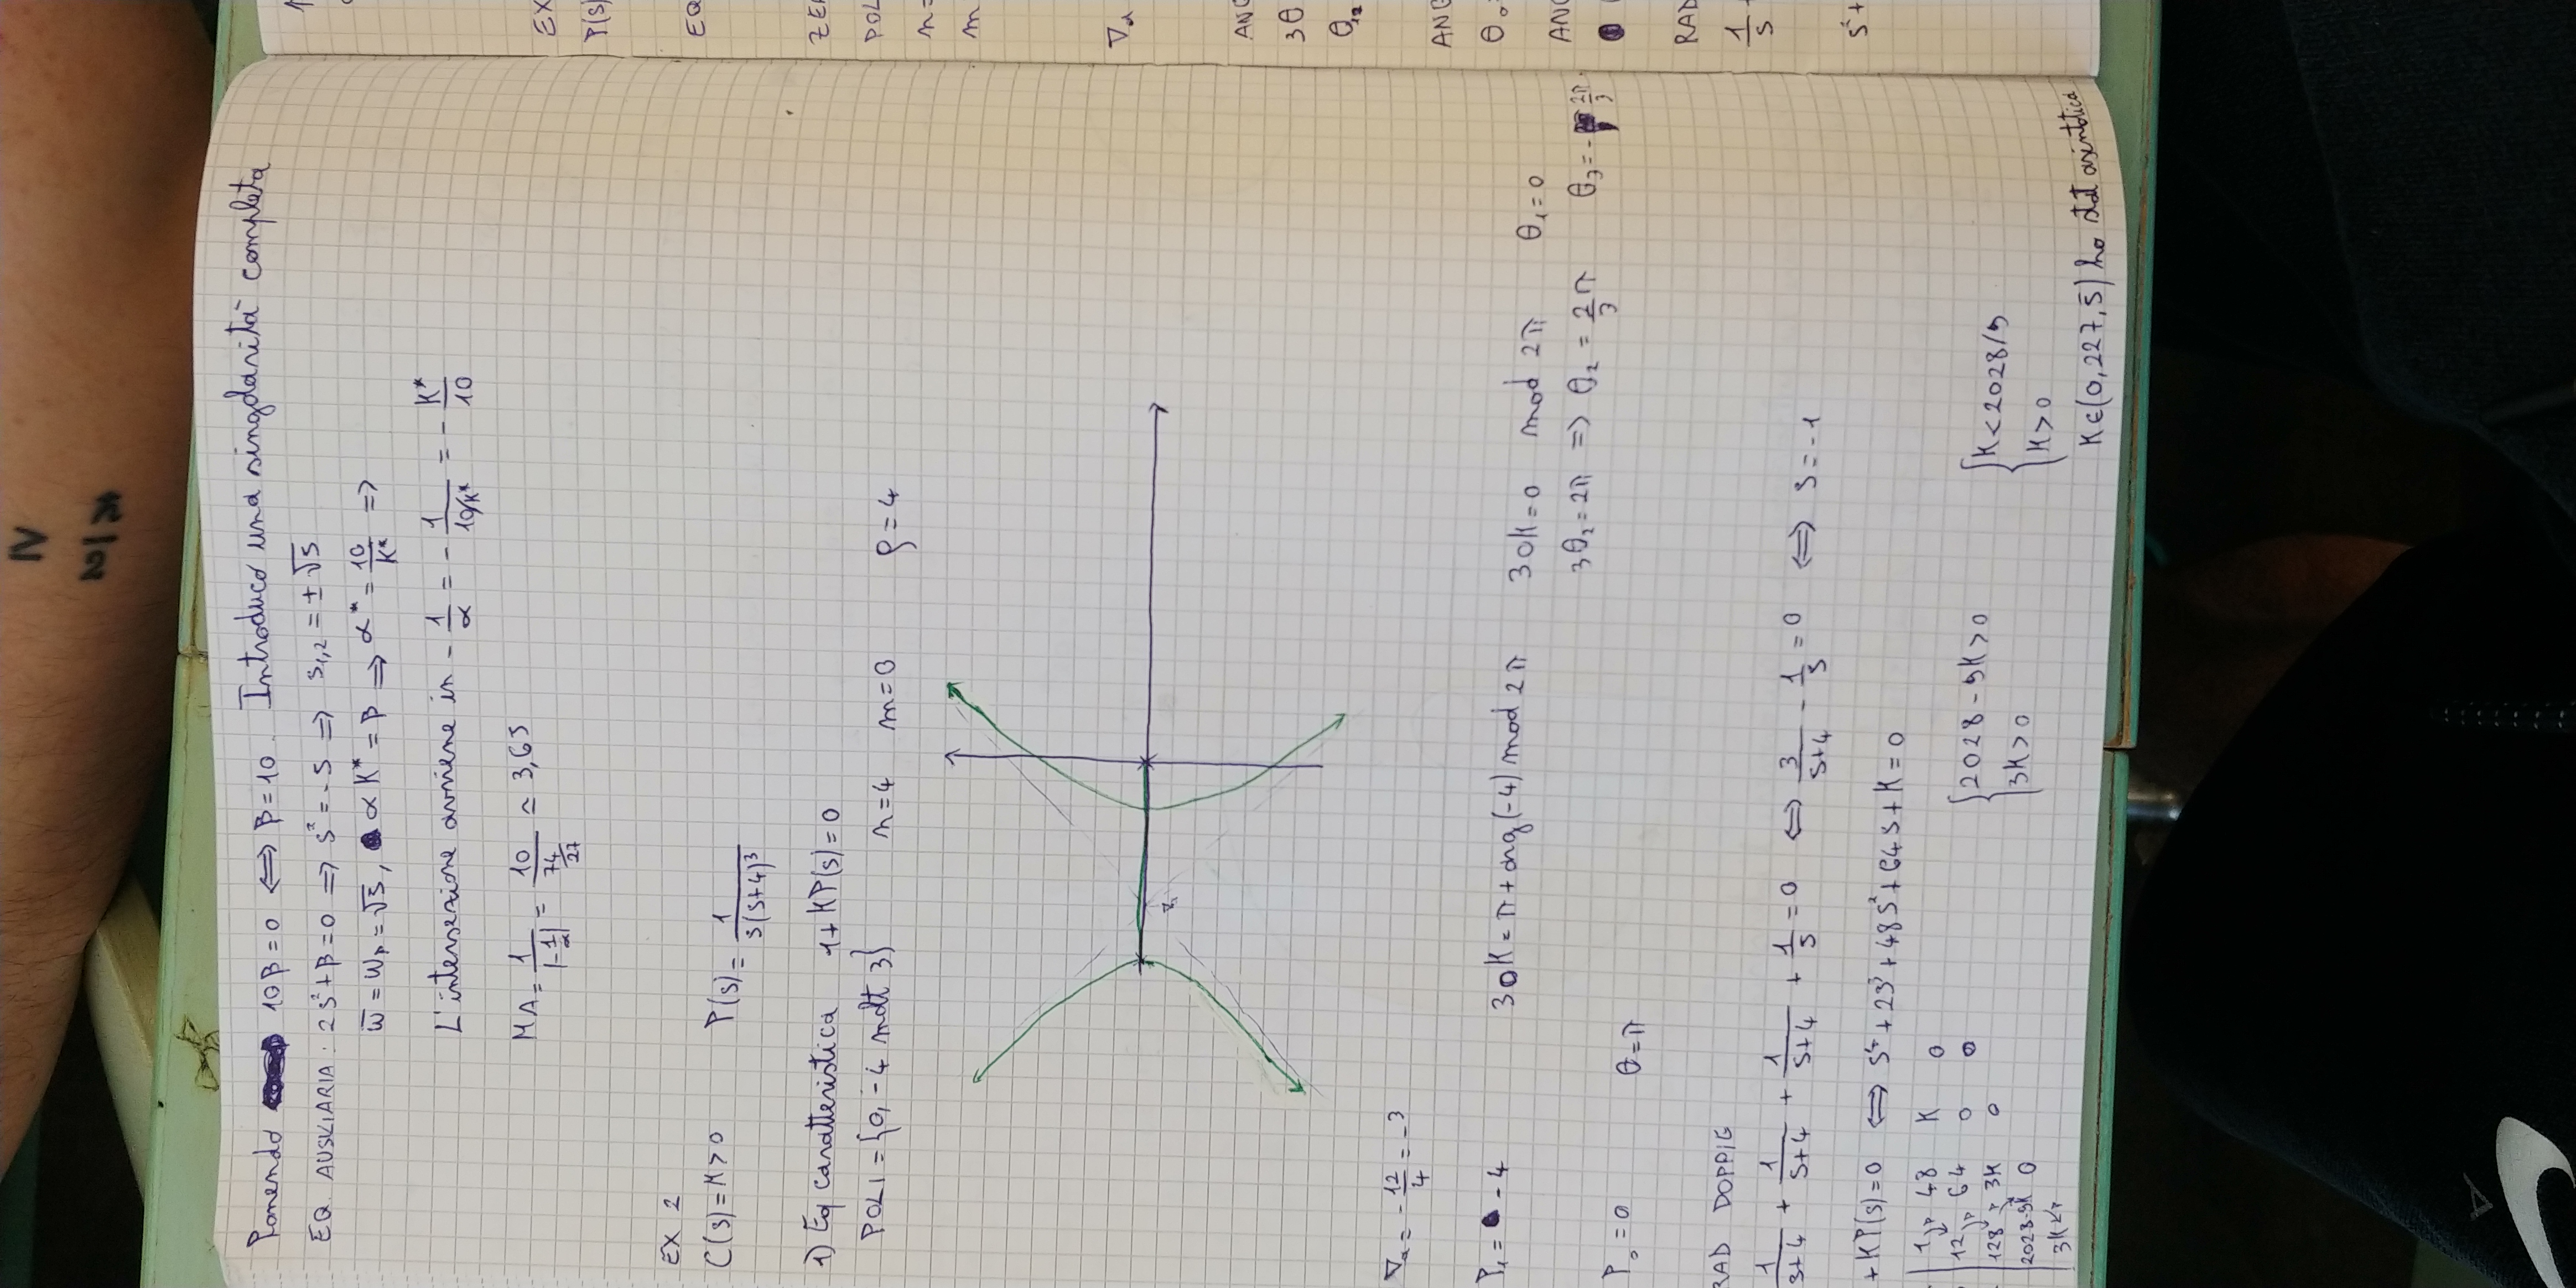 IV
Ponendo 10β=0 ⟺ β=10. Introduco una singolarità completa
EQ. AUSILIARIA: 2s²+β=0 ⟹ s²=-5 ⟹ s₁,₂=±√5
ω̄=ωp=√5, αK*=β ⟹ α*=10/K* ⟹
L'intersezione avviene in -1/α = -1/(10/K*) = -K*/10
MA=1/|-1/α| = 10/(74/27) ≃ 3,65
EX 2
C(s)=K>0 P(s)=1/(s(s+4)³)
1) Eq caratteristica 1+KP(s)=0
POLI={0,-4 molt 3} n=4 m=0 ρ=4
∇a
∇a=-12/4=-3
P₁=-4 3θK=π+arg(-4) mod 2π 3θK=0 mod 2π θ₁=0
3θ₂=2π ⟹ θ₂=2/3π θ₃=-2π/3
P₀=0 θ=π
RAD DOPPIE
1/(s+4) + 1/(s+4) + 1/(s+4) + 1/s=0 ⟺ 3/(s+4) - 1/s=0 ⟺ s=-1
+KP(s)=0 ⟺ s⁴+2s³+48s²+64s+K=0
1 48 K 0
12 64 0 0
128 3K 0
2028-9K 0
3K
{2028-9K>0 {K<2028/9
{3K>0 {K>0
K∈(0,227,5) ho stat asintotica
EX
P(s)
EQ
ZER
POL
n=
m
∇a
ANG
3θ
θ₁₂
ANG
θ₀
ANG
RAD
1/s
s²+